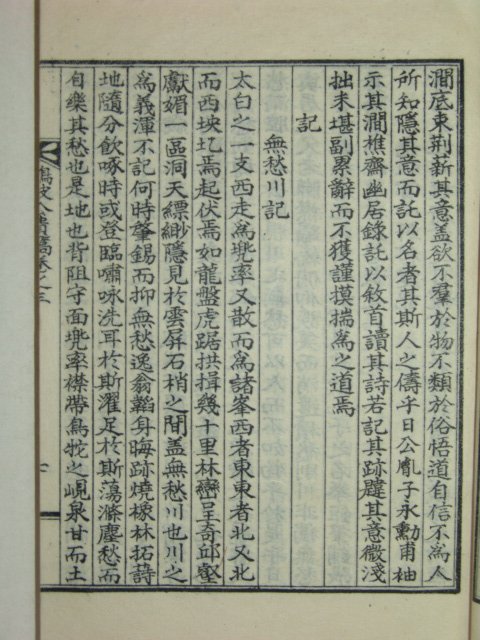 澗底束荊薪其意盖欲不羣於物不類於俗悟道自信不爲人
所知隱其意而託以名者其斯人之儔乎日公胤子永勳甫袖
示其澗樵齋幽居錄託以敘首讀其詩若記其跡躂其意微淺
拙未堪副累辭而不獲謹摸揣爲之道焉
記
無愁川記
太白之一支西走爲兜率又散而爲諸峯西者東東者北又北
而西坱圠焉起伏焉如龍盤虎踞拱揖幾十里林巒呈奇邱壑
獻媚一區洞天縹緲隱見於雲屏石梢之間盖無愁川也川之
爲義渾不記何時肇錫而抑無愁逸翁韜身晦跡燒橡林拓蒔
地隨分飮啄時或登臨嘯咏洗耳於斯濯足於斯蕩滌塵愁而
自樂其愁也是地也背阻守面兜率襟帶鳥
之峴泉甘而土
卷之三
七